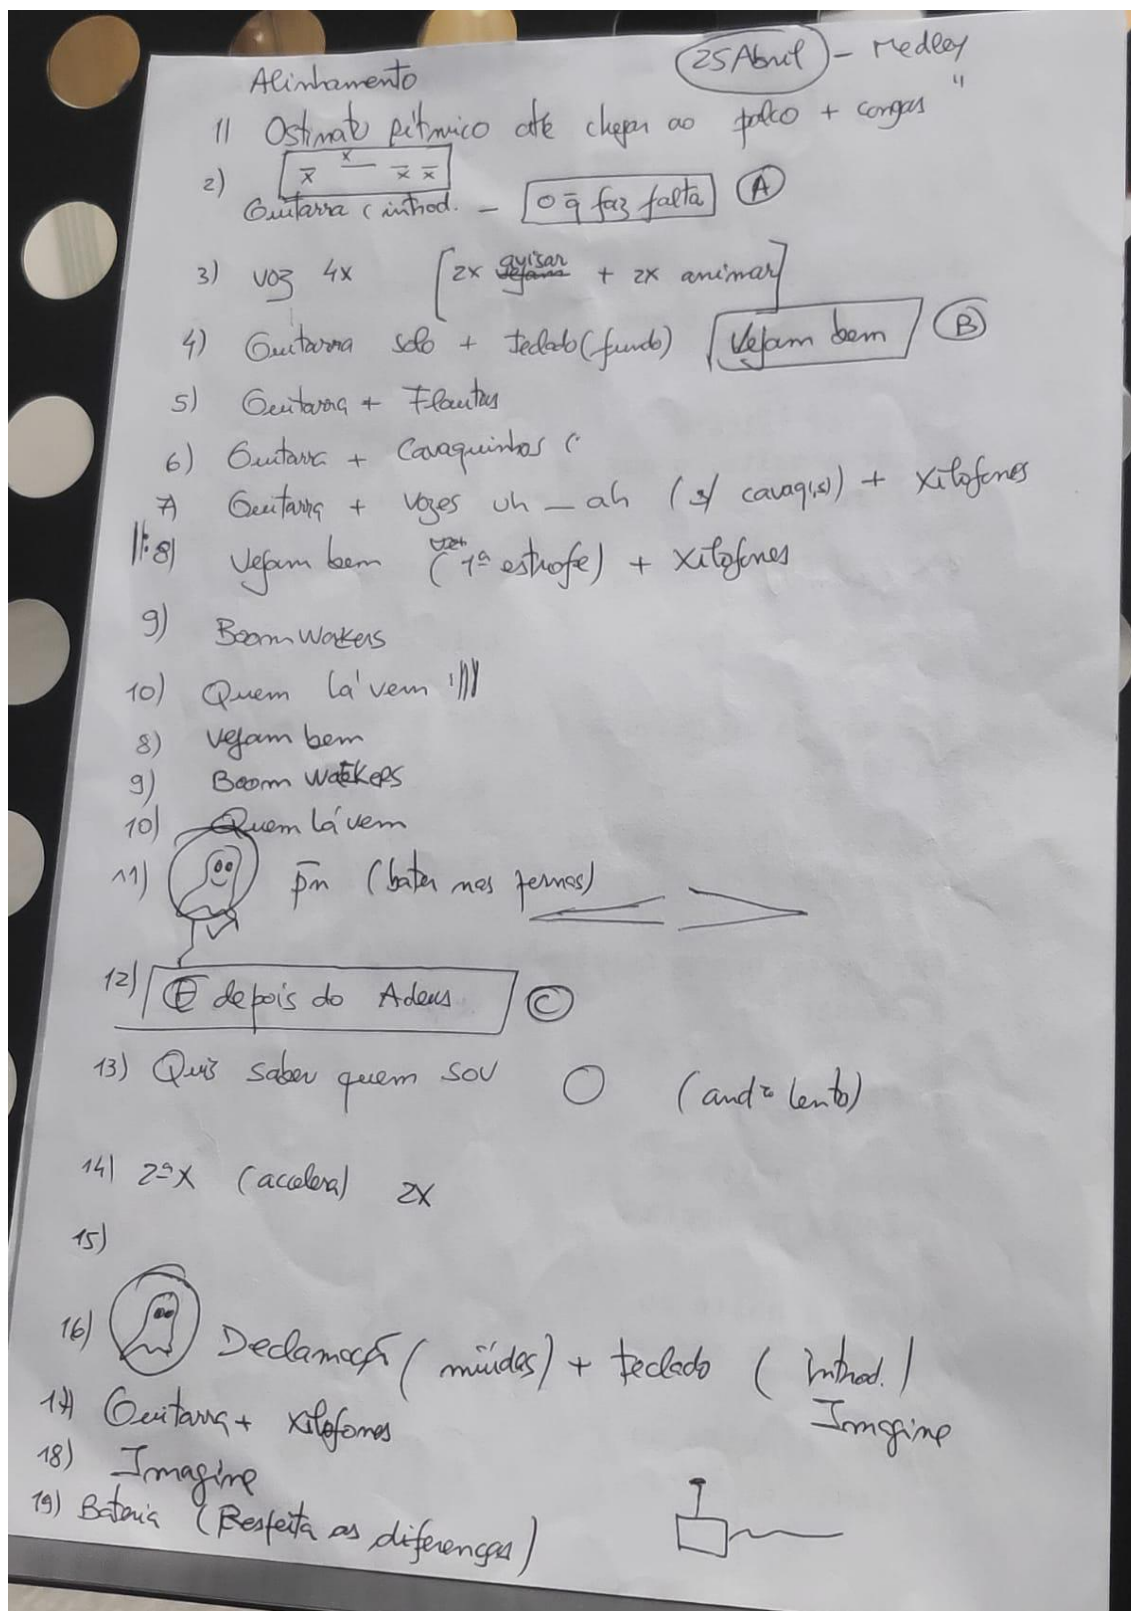 Alinhamento
25 Abril - Medley "
1) Ostinato rítmico até chegar ao palco + congas
2)
x x x x
Guitarra (introd. - O q̄ faz falta A
3) voz 4x [2x avisar + 2x animar]
4) Guitarra solo + teclado (fundo) Vejam bem B
5) Guitarra + Flautas
6) Guitarra + Cavaquinhos (
7) Guitarra + vozes uh _ ah (s/ cavaq(s)) + xilofones
||: 8) Vejam bem (1ª estrofe) + xilofones
9) Boomwakers
10) Quem lá vem :||
8) Vejam bem
9) Boom wakkers
10) Quem lá vem
11) p̄m (bater nas pernas)
12) E depois do Adeus C
13) Quis saber quem sou O (andº lento)
14) 2ªx (accelera) 2x
15)
16) Declamação (miúdos) + teclado (introd.)
Imagine
17) Guitarra + xilofones
18) Imagine
19) Bateria (Respeita as diferenças)